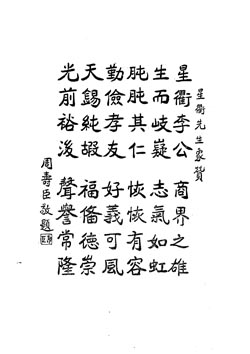 星衢先生象贊
星衢李公　商界之雄
生而岐嶷　志氣如虹
肫肫其仁　恢恢有容
勤儉孝友　好義可風
天錫純嘏　福僃德崇
光前裕後　聲譽常隆
周壽臣敬題